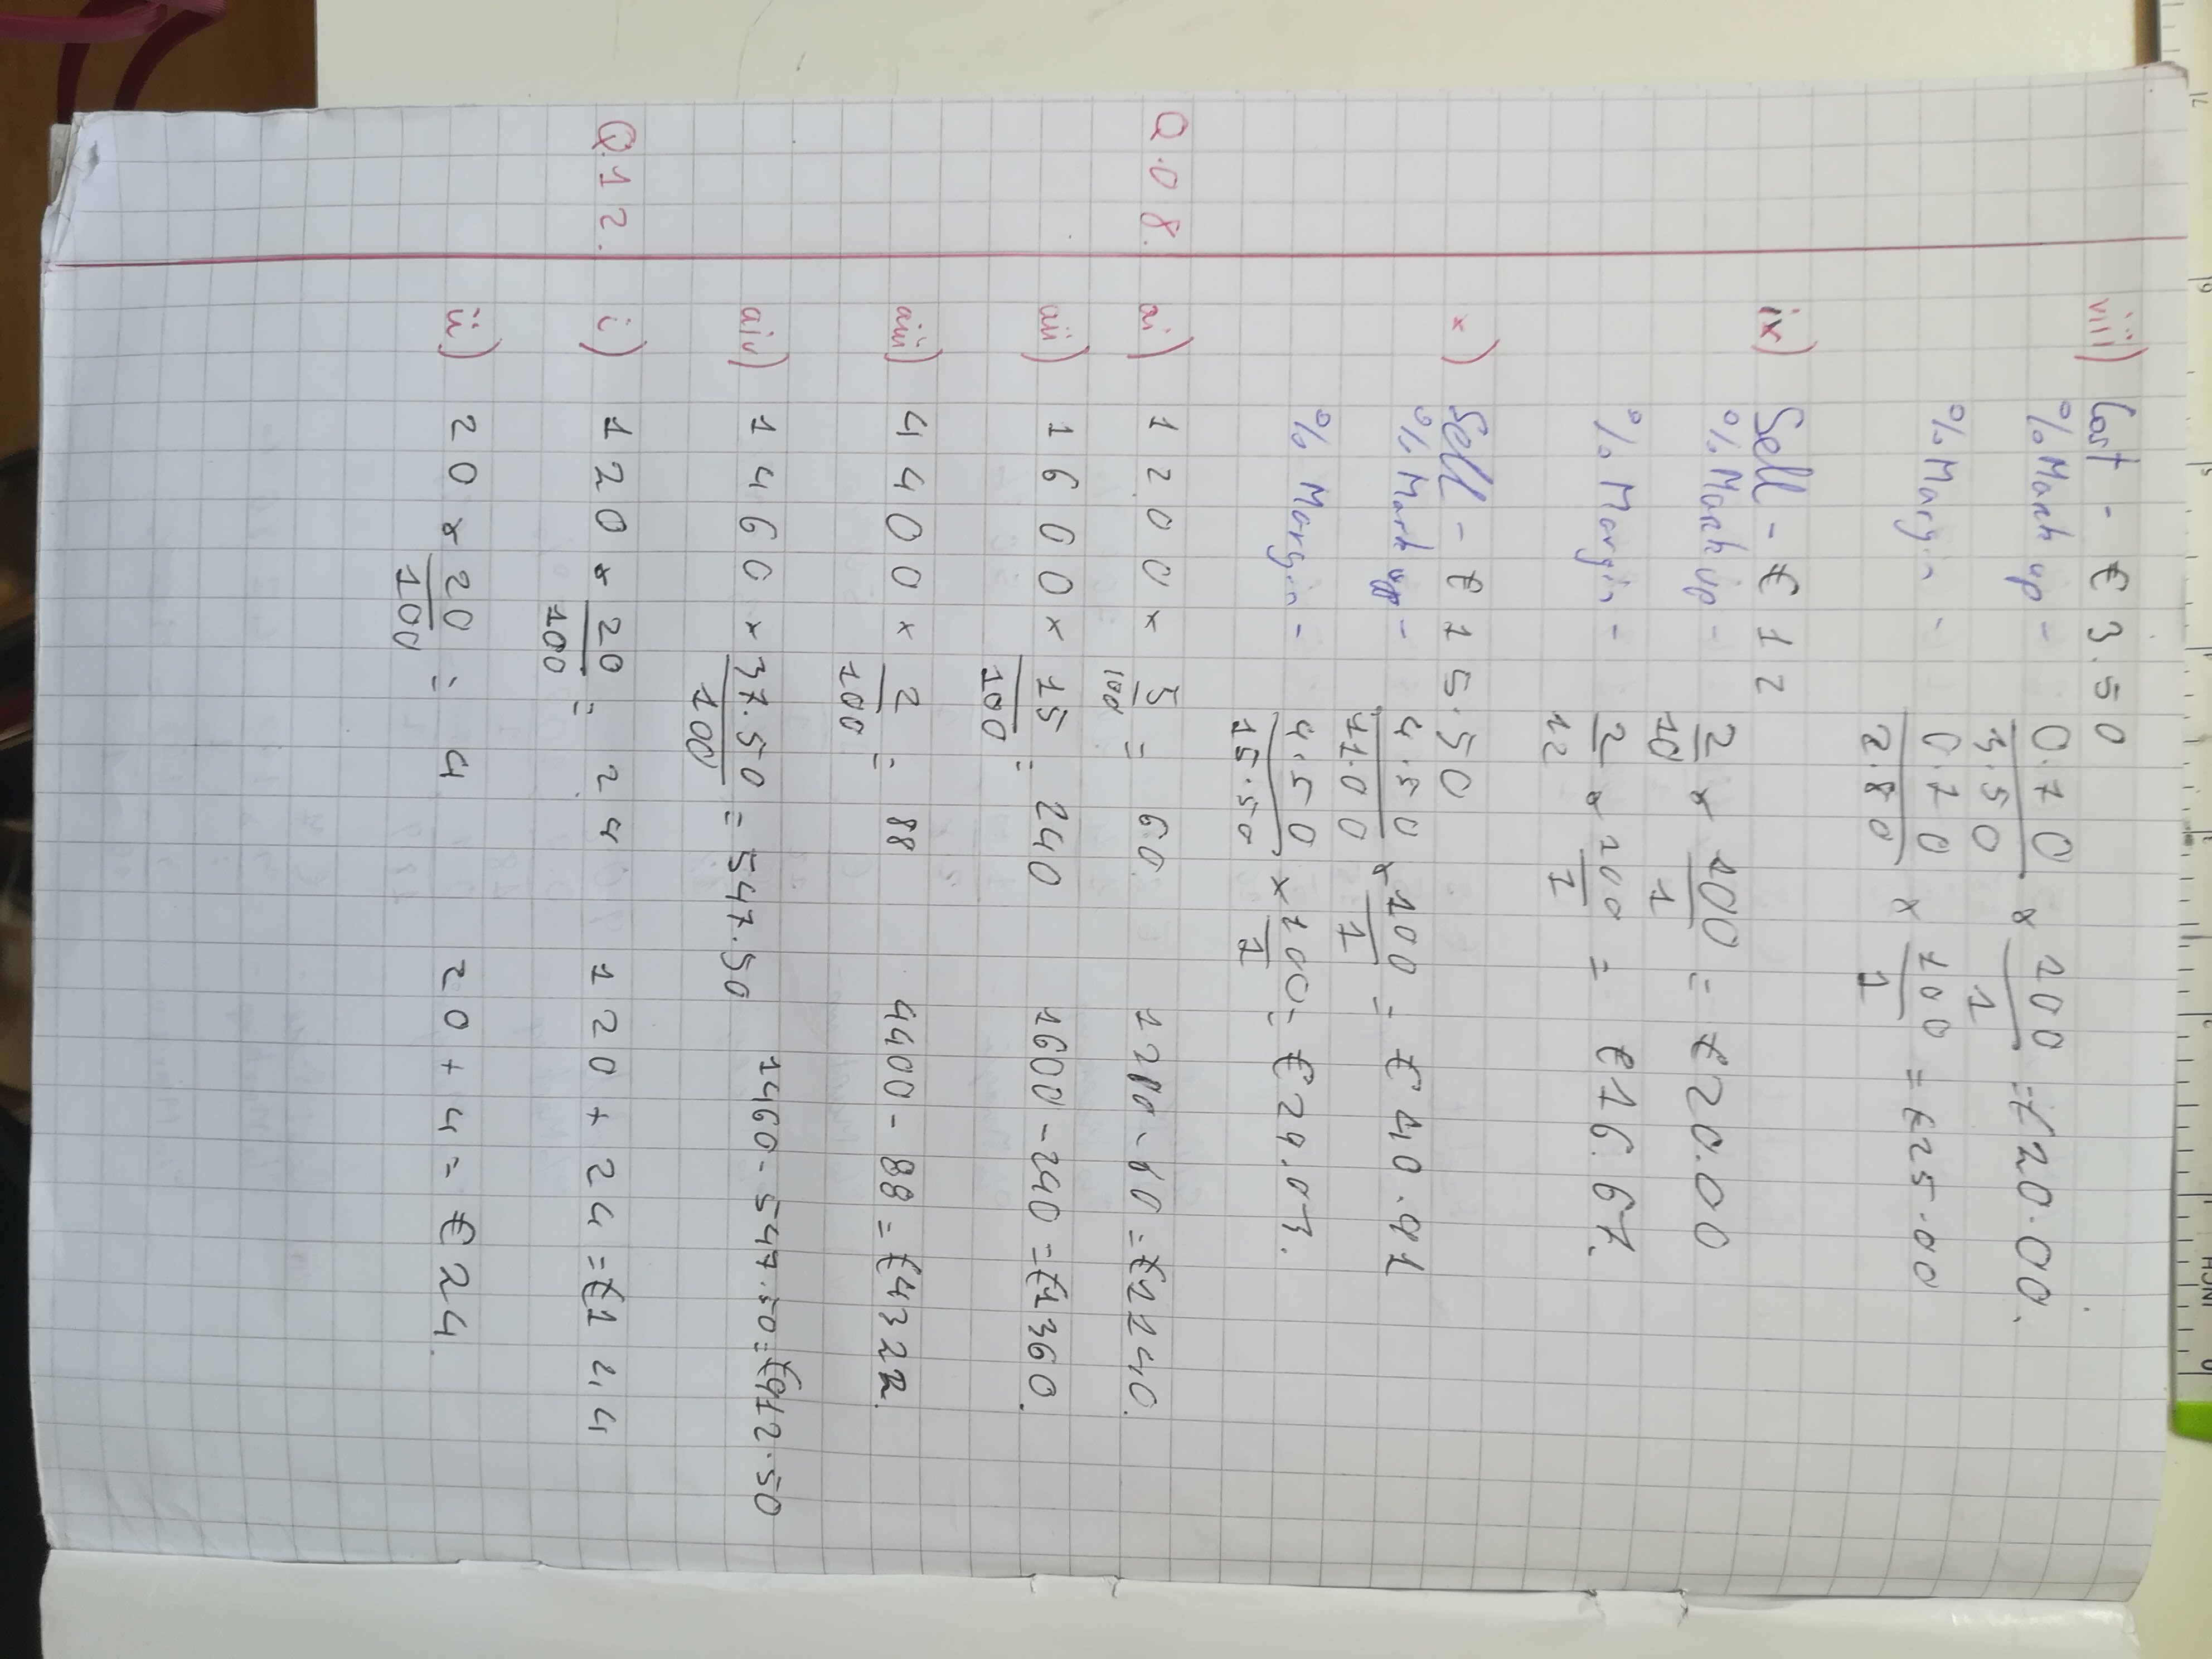 viii) Cost - € 3.50
% Mark up - 0.70/3.50 x 100/1 = €20.00.
% Margin - 0.70/2.80 x 100/1 = €25.00
ix) Sell - € 12
% Mark up - 2/10 x 100/1 = €20.00
% Margin - 2/12 x 100/1 = €16.67.
x) Sell - € 15.50
% Mark up - 4.50/11.00 x 100/1 = €40.91
% Margin - 4.50/15.50 x 100/1 = €29.03.
Q.08. ai) 1200 x 5/100 = 60 1200 - 60 = €1140.
aii) 1600 x 15/100 = 240 1600 - 240 = €1360.
aiii) 4400 x 2/100 = 88 4400 - 88 = €4322.
aiv) 1460 x 37.50/100 = 547.50 1460 - 547.50 = €912.50
Q.12. i) 120 x 20/100 = 24 120 + 24 = €144
ii) 20 x 20/100 = 4 20 + 4 = €24.